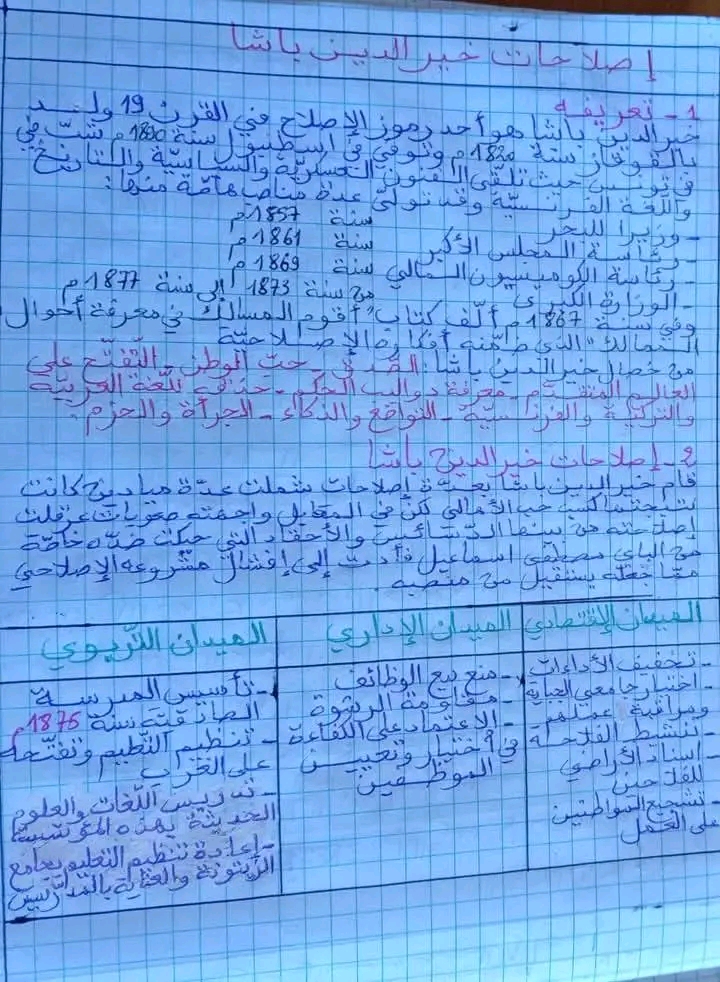 إصلاحات خير الدين باشا
1 - تعريفه
خير الدين باشا هو أحد رموز الإصلاح في القرن 19 ولد
بالقوقاز سنة 1820م وتوفي في اسطنبول سنة 1890م شبّ في
في تونس حيث تلقى الفنون العسكريّة والسياسيّة والتاريخ
واللغة الفرنسيّة وقد تولّى عدة مناصب هامّة منها:
- وزيرا للبحر سنة 1857م
- رئاسة المجلس الأكبر سنة 1861م
- رئاسة الكوميسيون المالي سنة 1869م
- الوزارة الكبرى من سنة 1873 إلى سنة 1877م
وفي سنة 1867م ألّف كتاب "أقوم المسالك في معرفة أحوال
الممالك" الذي ضمّنه أفكاره الإصلاحيّة
من خصال خير الدين باشا: الصدق - حبّ الوطن - التّفتّح على
العالم المتقدّم - معرفة دواليب الحكم - حذقه للّغة العربيّة
والتركيّة والفرنسيّة - التواضع والذكاء - الجرأة والحزم.
2 - إصلاحات خير الدين باشا
قام خير الدين باشا بعدّة إصلاحات شملت عدّة ميادين كانت
نتيجتها كسب حب الأهالي لكن في المقابل واجهته صعوبات عرقلت
إصلاحته من بينها الدّسائس والأحقاد التي حيكت ضدّه خاصّة
من الباي مصطفى اسماعيل فأدت إلى إفشال مشروعه الإصلاحي
ممّا جعله يستقيل من منصبه.
الميدان الإقتصادي
- تخفيف الأداءات
- اختيار جامعي الجباية
ومراقبة عملهم
- تنشيط الفلاحة
- إسناد الأراضي
للفلاحين
- تشجيع المواطنين
على العمل
الميدان الإداري
- منع بيع الوظائف
- مقاومة الرشوة
- الاعتماد على الكفاءة
في اختيار وتعيين
الموظفين
الميدان التّربوي
- تأسيس المدرسة
الصادقيّة سنة 1875م
- تنظيم التّعليم وتفتّحه
على الغرب
- تدريس اللّغات والعلوم
الحديثة بهذه المؤسّسة
- إعادة تنظيم التعليم بجامع
الزّيتونة والعناية بالمدرّسين